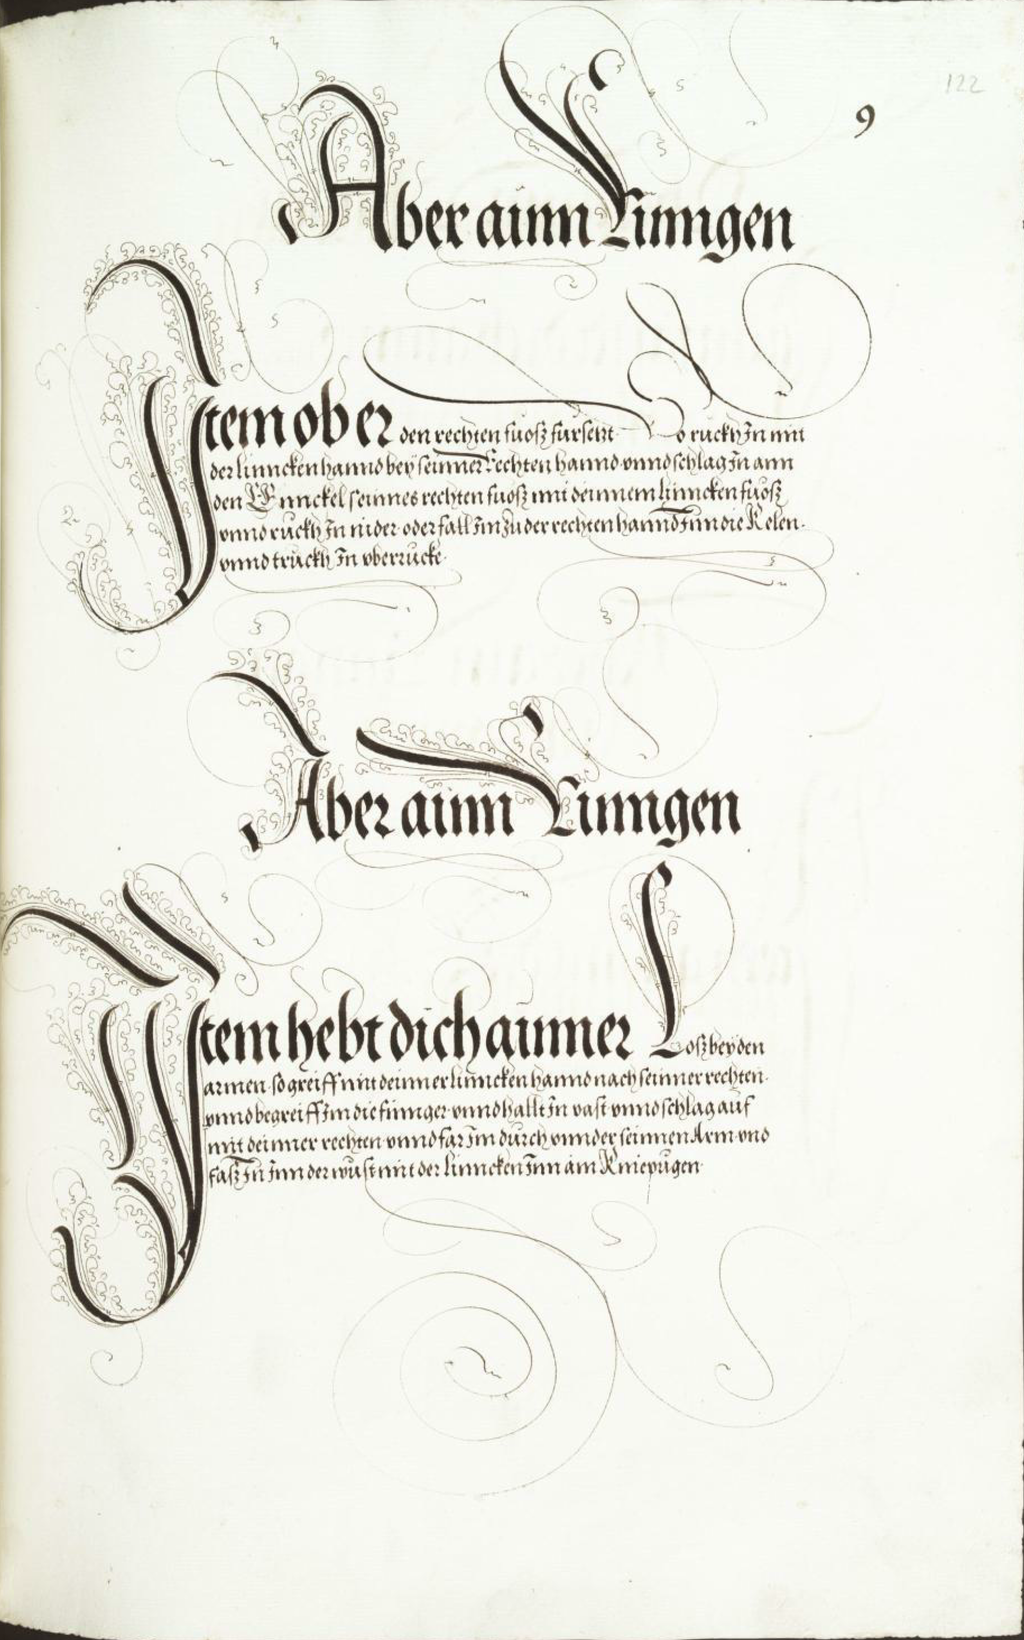 122
9
Aber ainn Ringen
Item ob er den rechten fuosz fursetzt So ruckh In mit
der linncken hannd bey seinner Rechten hannd vnnd schlag In ann
den Ennckel seinnes rechten fuosz mit deinnem linncken fuosz
vnnd ruckh In nider oder fall Im zu der rechten hannd Inn die Kelen
vnnd truckh In vberrucke
Aber ainn Ringen
Item hebt dich ainner Losz bey den
armen so greiff mit deinner linncken hannd nach seinner rechten
vnnd begreiff Im die finnger vnnd hallt In vast vnnd schlag auf
mit deinner rechten vnnd far Im durch vnnder seinnen Arm vnd
fasz In Inn der wust mit der linncken Inn am Kniepugen